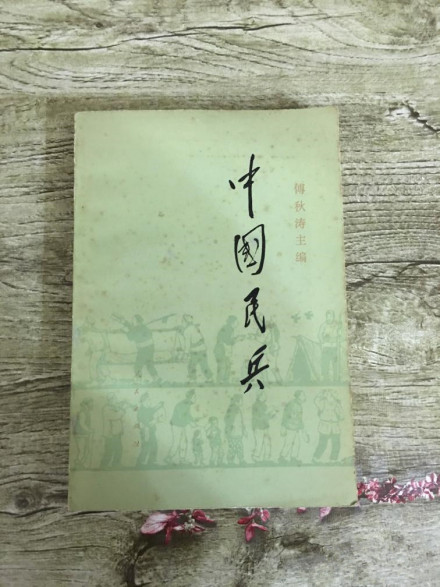 傅秋涛主编
中國民兵